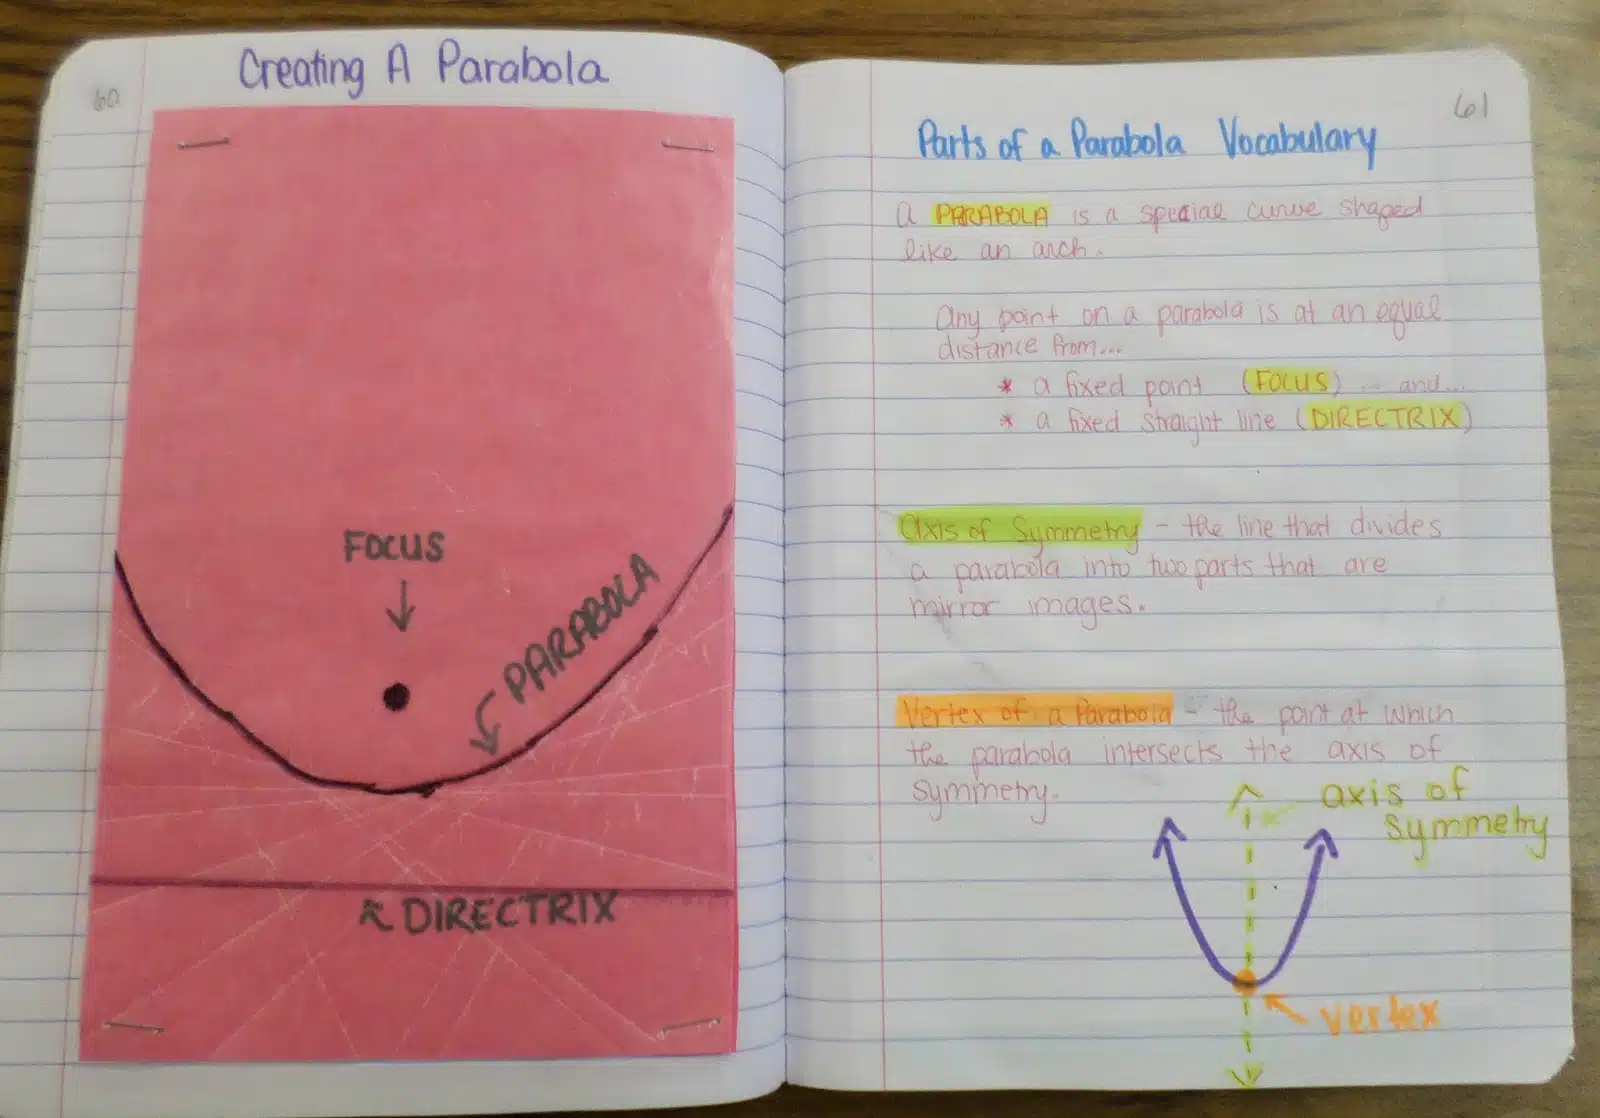 60
Creating A Parabola
FOCUS
PARABOLA
DIRECTRIX
61
Parts of a Parabola Vocabulary
a PARABOLA is a special curve shaped
like an arch.
Any point on a parabola is at an equal
distance from...
* a fixed point (FOCUS) ... and...
* a fixed straight line (DIRECTRIX)
Axis of Symmetry - the line that divides
a parabola into two parts that are
mirror images.
Vertex of a Parabola - the point at which
the parabola intersects the axis of
symmetry.
axis of
symmetry
vertex